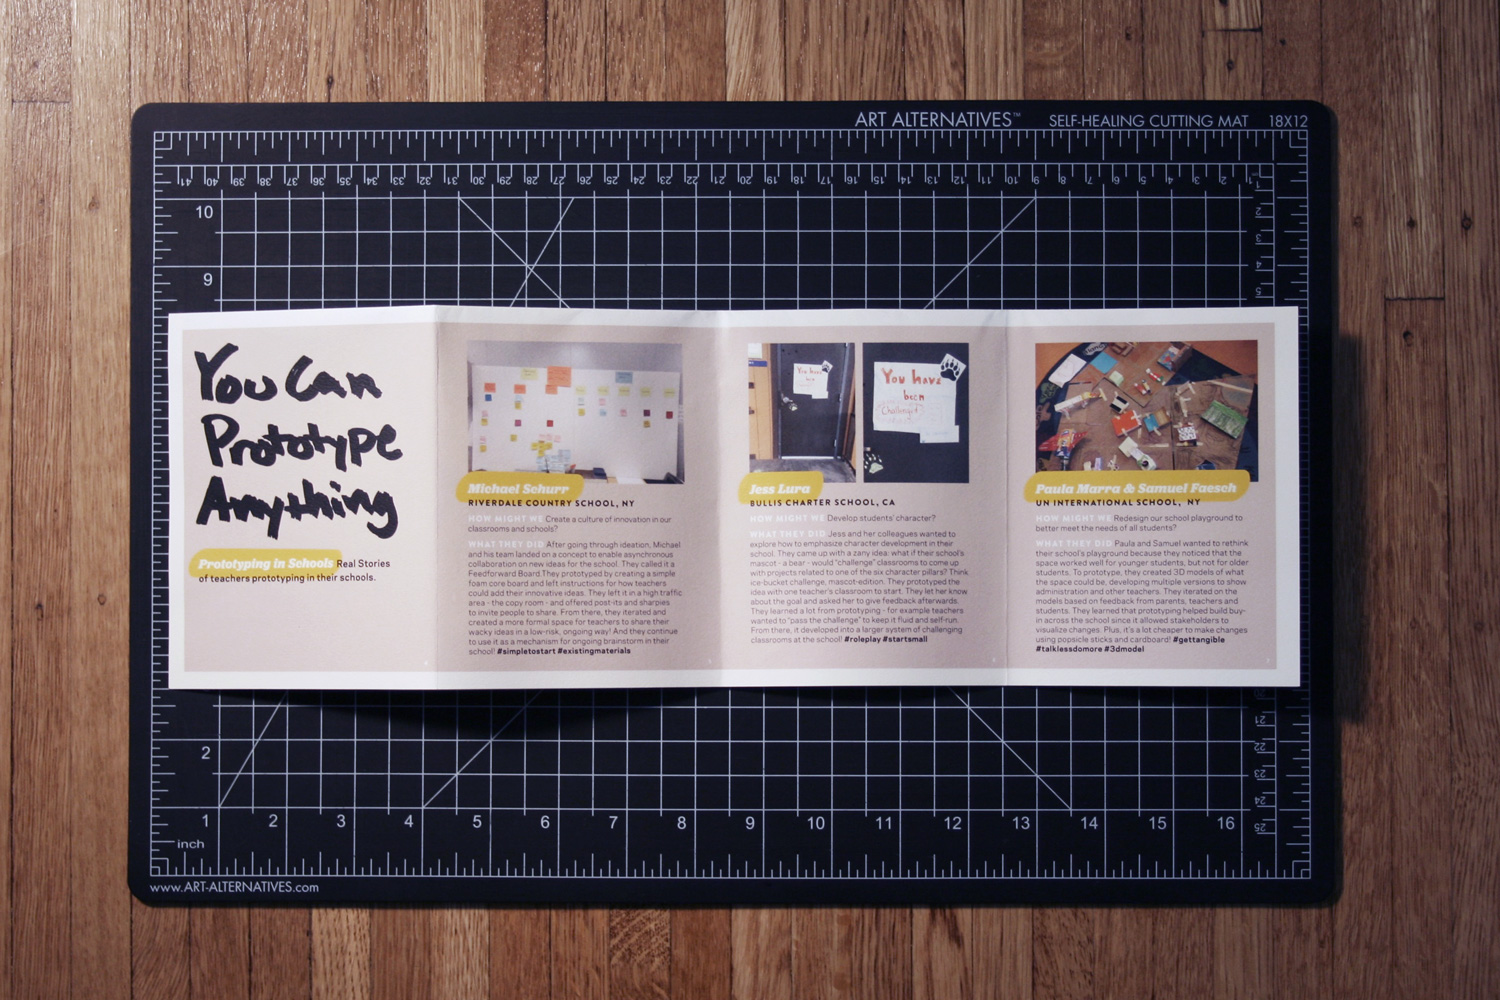 ART ALTERNATIVES™ SELF-HEALING CUTTING MAT 18X12
41 40 39 38 37 36 35 34 33 32 31 30 29 28 27 26 25 24 23 22 21 20 19 18 17 16 15 14 13 12 11 10 9 8 7 6 5 4 3 2 1
10
9
1
2
3
4
5
You Can
Prototype
Anything
Prototyping in Schools Real Stories
of teachers prototyping in their schools.
Michael Schurr
RIVERDALE COUNTRY SCHOOL, NY
HOW MIGHT WE Create a culture of innovation in our
classrooms and schools?
WHAT THEY DID After going through ideation, Michael
and his team landed on a concept to enable asynchronous
collaboration on new ideas for the school. They called it a
Feedforward Board. They prototyped by creating a simple
foam core board and left instructions for how teachers
could add their innovative ideas. They left it in a high traffic
area - the copy room - and offered post-its and sharpies
to invite people to share. From there, they iterated and
created a more formal space for teachers to share their
wacky ideas in a low-risk, ongoing way! And they continue
to use it as a mechanism for ongoing brainstorm in their
school! #simpletostart #existingmaterials
You have
been
You have
been
Challenged
Jess Lura
BULLIS CHARTER SCHOOL, CA
HOW MIGHT WE Develop students' character?
WHAT THEY DID Jess and her colleagues wanted to
explore how to emphasize character development in their
school. They came up with a zany idea: what if their school's
mascot - a bear - would "challenge" classrooms to come up
with projects related to one of the six character pillars? Think
ice-bucket challenge, mascot-edition. They prototyped the
idea with one teacher's classroom to start. They let her know
about the goal and asked her to give feedback afterwards.
They learned a lot from prototyping - for example teachers
wanted to "pass the challenge" to keep it fluid and self-run.
From there, it developed into a larger system of challenging
classrooms at the school! #roleplay #startsmall
Paula Marra & Samuel Faesch
UN INTERNATIONAL SCHOOL, NY
HOW MIGHT WE Redesign our school playground to
better meet the needs of all students?
WHAT THEY DID Paula and Samuel wanted to rethink
their school's playground because they noticed that the
space worked well for younger students, but not for older
students. To prototype, they created 3D models of what
the space could be, developing multiple versions to show
administration and other teachers. They iterated on the
models based on feedback from parents, teachers and
students. They learned that prototyping helped build buy-
in across the school since it allowed stakeholders to
visualize changes. Plus, it's a lot cheaper to make changes
using popsicle sticks and cardboard! #gettangible
#talklessdomore #3dmodel
21
22
23
24
25
2
1 2 3 4 5 6 7 8 9 10 11 12 13 14 15 16
inch
www.ART-ALTERNATIVES.com